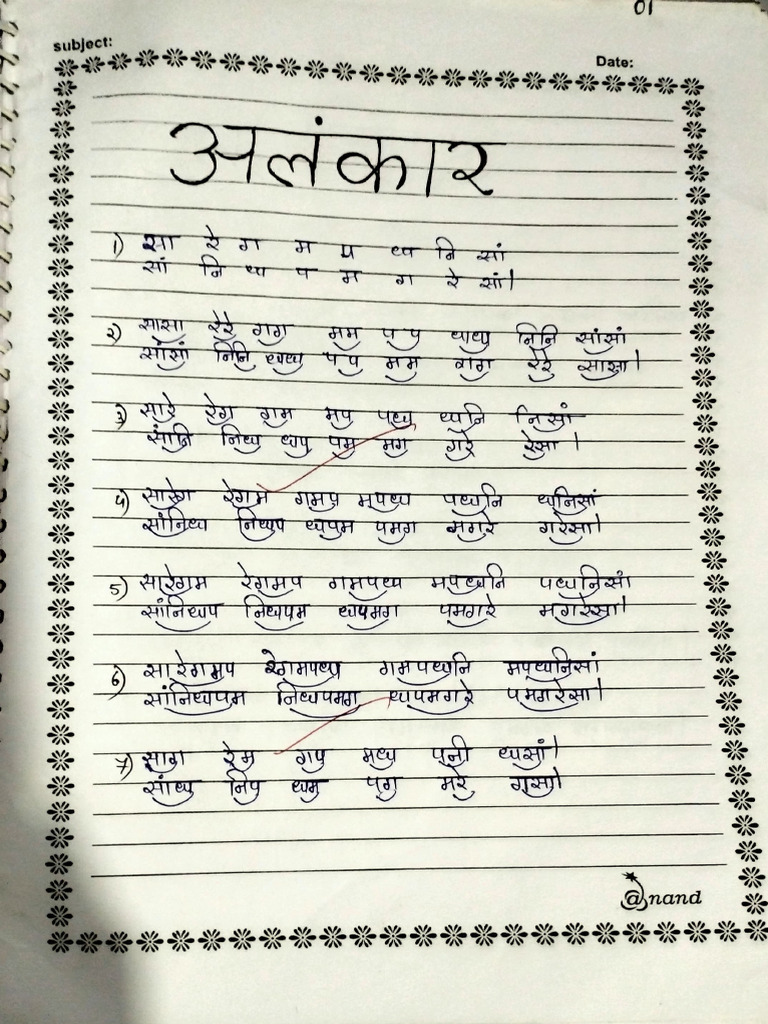 01
subject:
Date:
अलंकार
1) सा रे ग म प ध नि सां
सां नि ध प म ग रे सां।
2) सासा रेरे गग मम पप धध निनि सांसां
सांसां निनि धध पप मम गग रेरे सासा।
3) सारे रेग गम मप पध धनि निसां
सांनि निध धप पम मग गरे रेसा।
4) सारेग रेगम गमप मपध पधनि धनिसां
सांनिध निधप धपम पमग मगरे गरेसा।
5) सारेगम रेगमप गमपध मपधनि पधनिसां
सांनिधप निधपम धपमग पमगरे मगरेसा।
6) सारेगमप रेगमपध गमपधनि मपधनिसां
सांनिधपम निधपमग धपमगरे पमगरेसा।
7) साग रेम गप मध पनी धसां।
सांध निप धम पग मरे गसा।
@nand